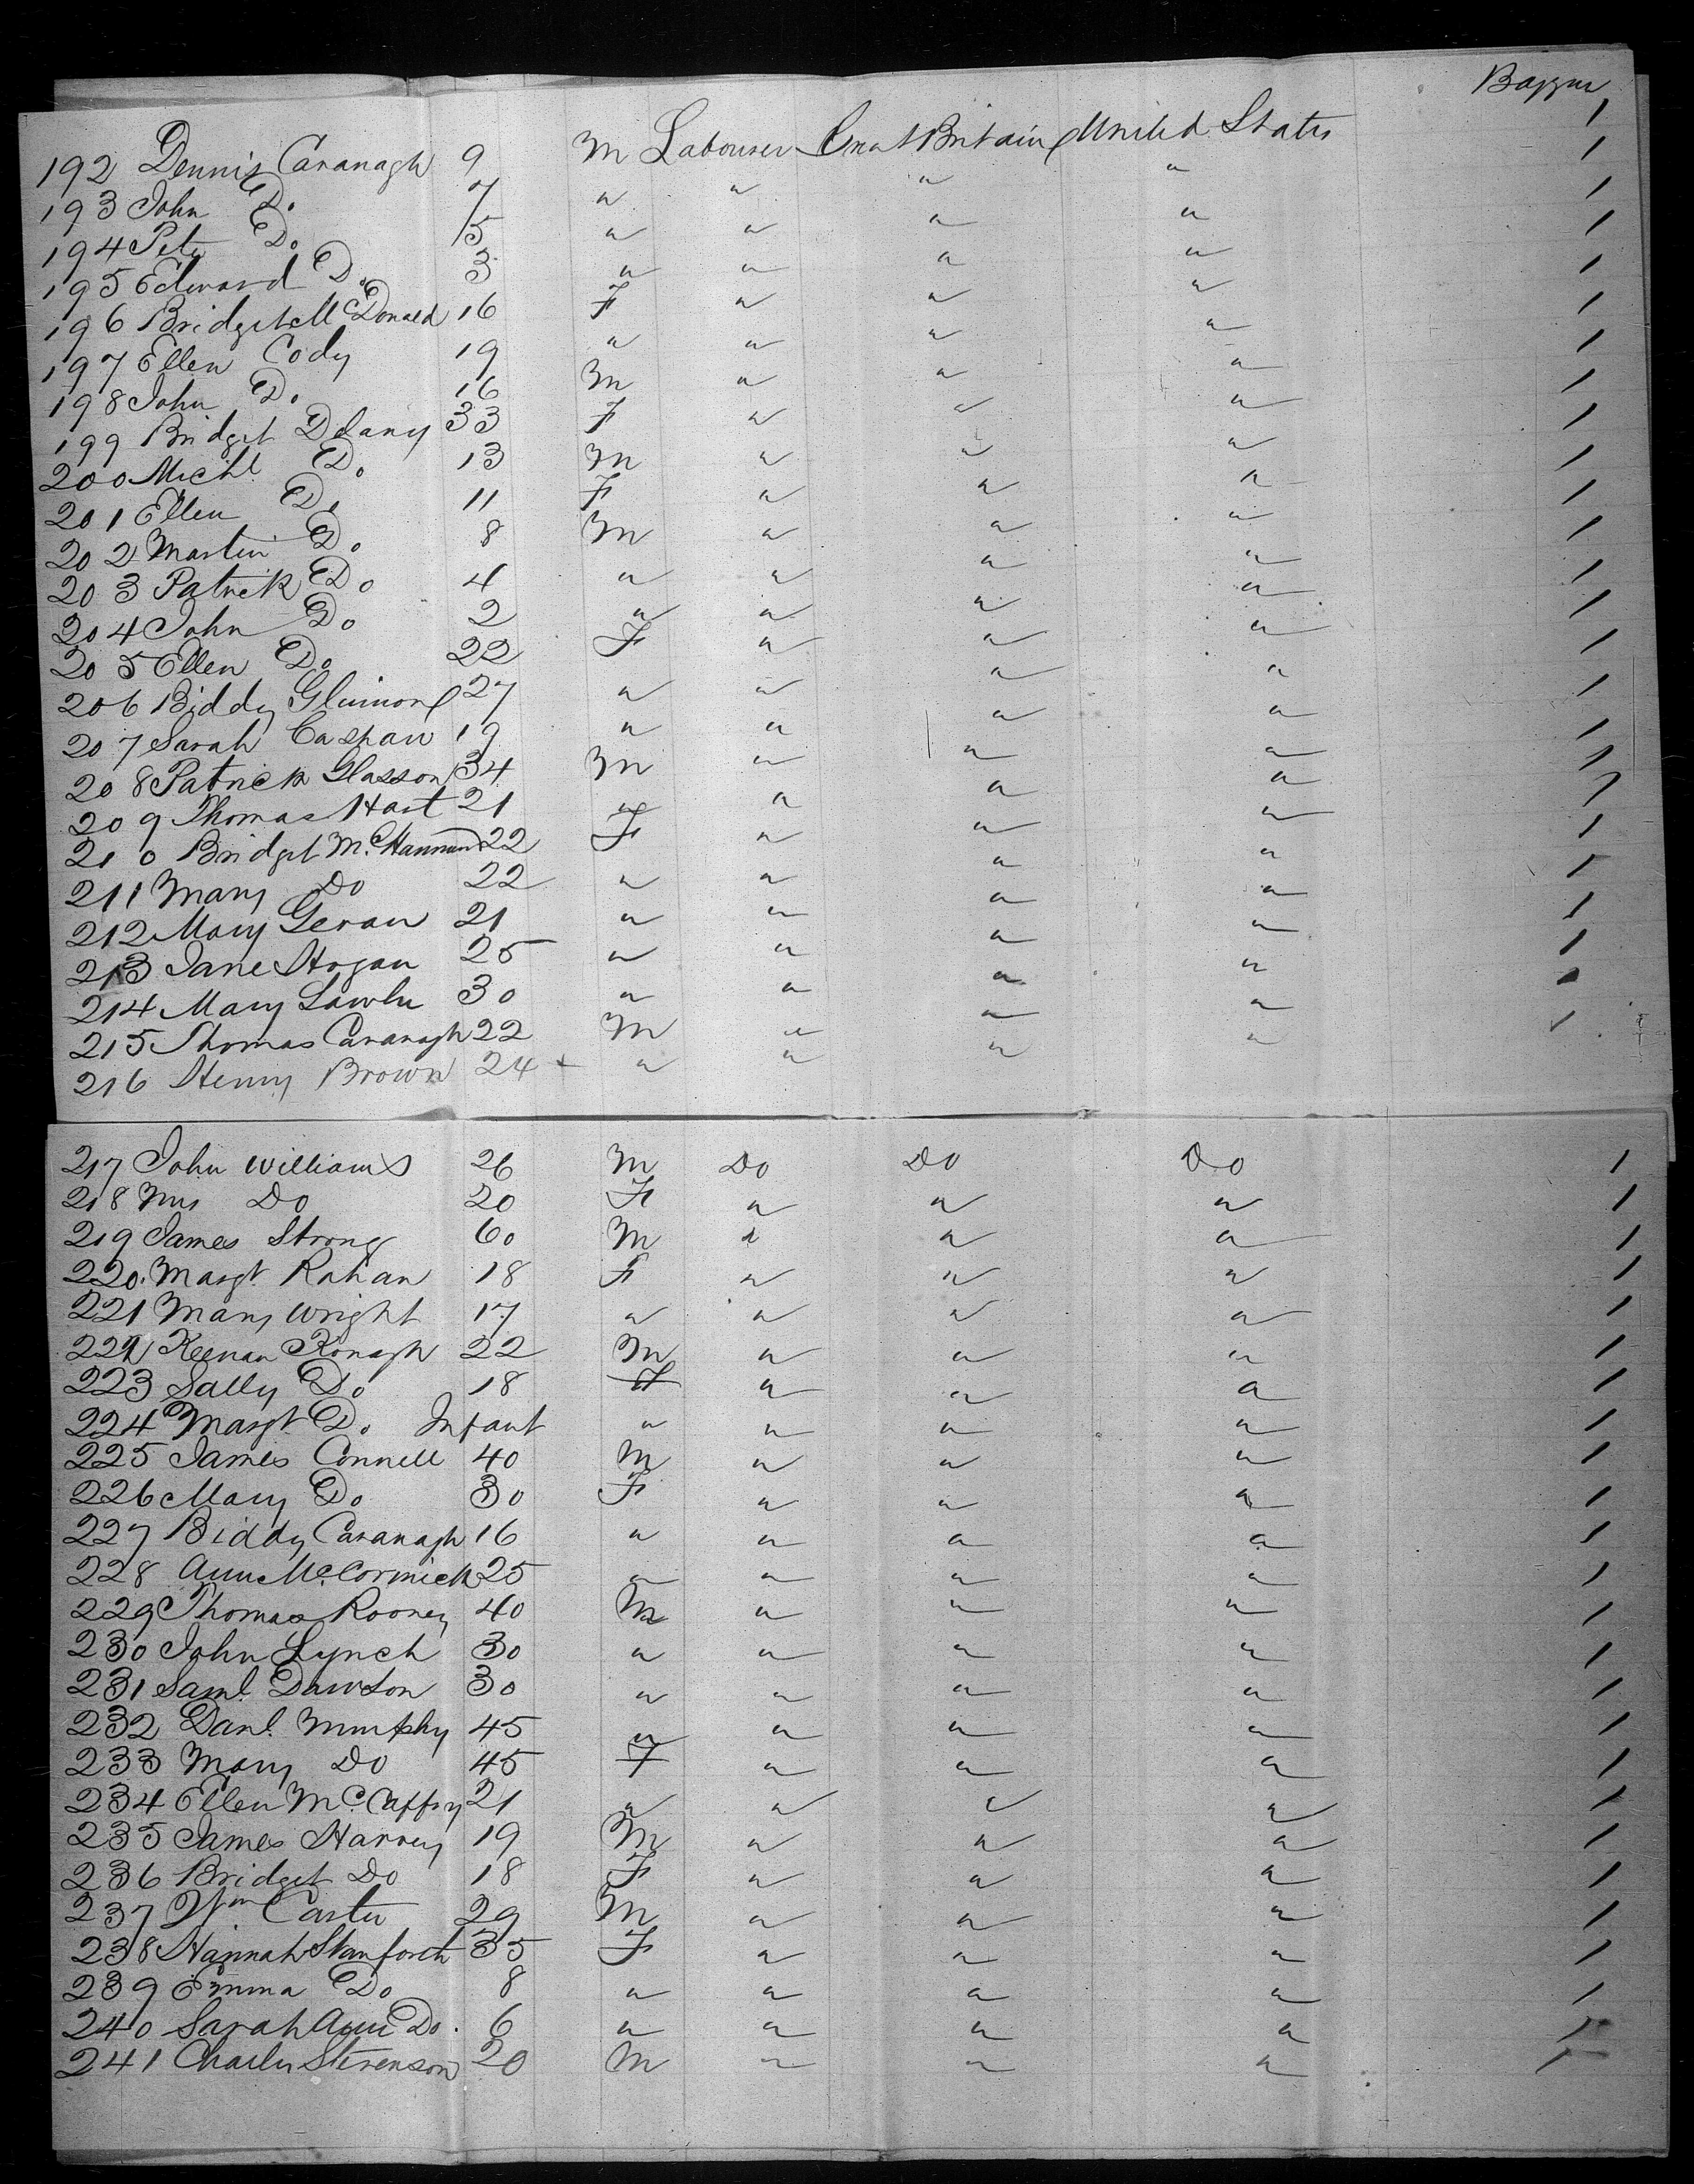 192 Dennis Cavanagh 9 M Labourer Great Britain United States 1
193 John Do 7 " " " " 1
194 Peter Do 5 " " " " 1
195 Edward Do 3 " " " " 1
196 Bridget McDonald 16 F " " " 1
197 Ellen Cody 19 " " " " 1
198 John Do 16 M " " " 1
199 Bridget Delany 33 F " " " 1
200 Michl Do 13 M " " " 1
201 Ellen Do 11 F " " " 1
202 Martin Do 8 M " " " 1
203 Patrick Do 4 " " " " 1
204 John Do 2 " " " " 1
205 Ellen Do 22 F " " " 1
206 Biddy 27 " " " " 1
207 Sarah 19 " " " " 1
208 Patrick Glasson 34 M " " " 1
209 Thomas Hart 21 " " " " 1
210 Bridget 22 F " " " 1
211 Mary Do 22 " " " " 1
212 Mary Geran 21 " " " " 1
213 Jane Hogan 25 " " " " 1
214 Mary Lawler 30 " " " " 1
215 Thomas Cavanagh 22 M " " " 1
216 Henry Brown 24 + " " " " 1
217 John Williams 26 M Do Do Do 1
218 Mrs Do 20 F " " " 1
219 James Strong 60 M " " " 1
220 Margt. Rahan 18 F " " " 1
221 Mary Wright 17 " " " " 1
222 Keenan Konagh 22 M " " " 1
223 Sally Do 18 F " " " 1
224 Margt Do Infant " " " " 1
225 James Connell 40 M " " " 1
226 Mary Do 30 F " " " 1
227 Biddy Cavanagh 16 " " " " 1
228 Ann McCormick 25 " " " " 1
229 Thomas Rooney 40 M " " " 1
230 John Lynch 30 " " " " 1
231 Saml. Dawson 30 " " " " 1
232 Danl. Murphy 45 " " " " 1
233 Mary Do 45 F " " " 1
234 Ellen McCaffry 21 " " " " 1
235 James Harvey 19 M " " " 1
236 Bridget Do 18 F " " " 1
237 Wm Carter 29 M " " " 1
238 Hannah Stanforth 35 F " " " 1
239 Emma Do 8 " " " " 1
240 Sarah Ann Do. 6 " " " " 1
241 Charles Stevenson 20 M " " " 1